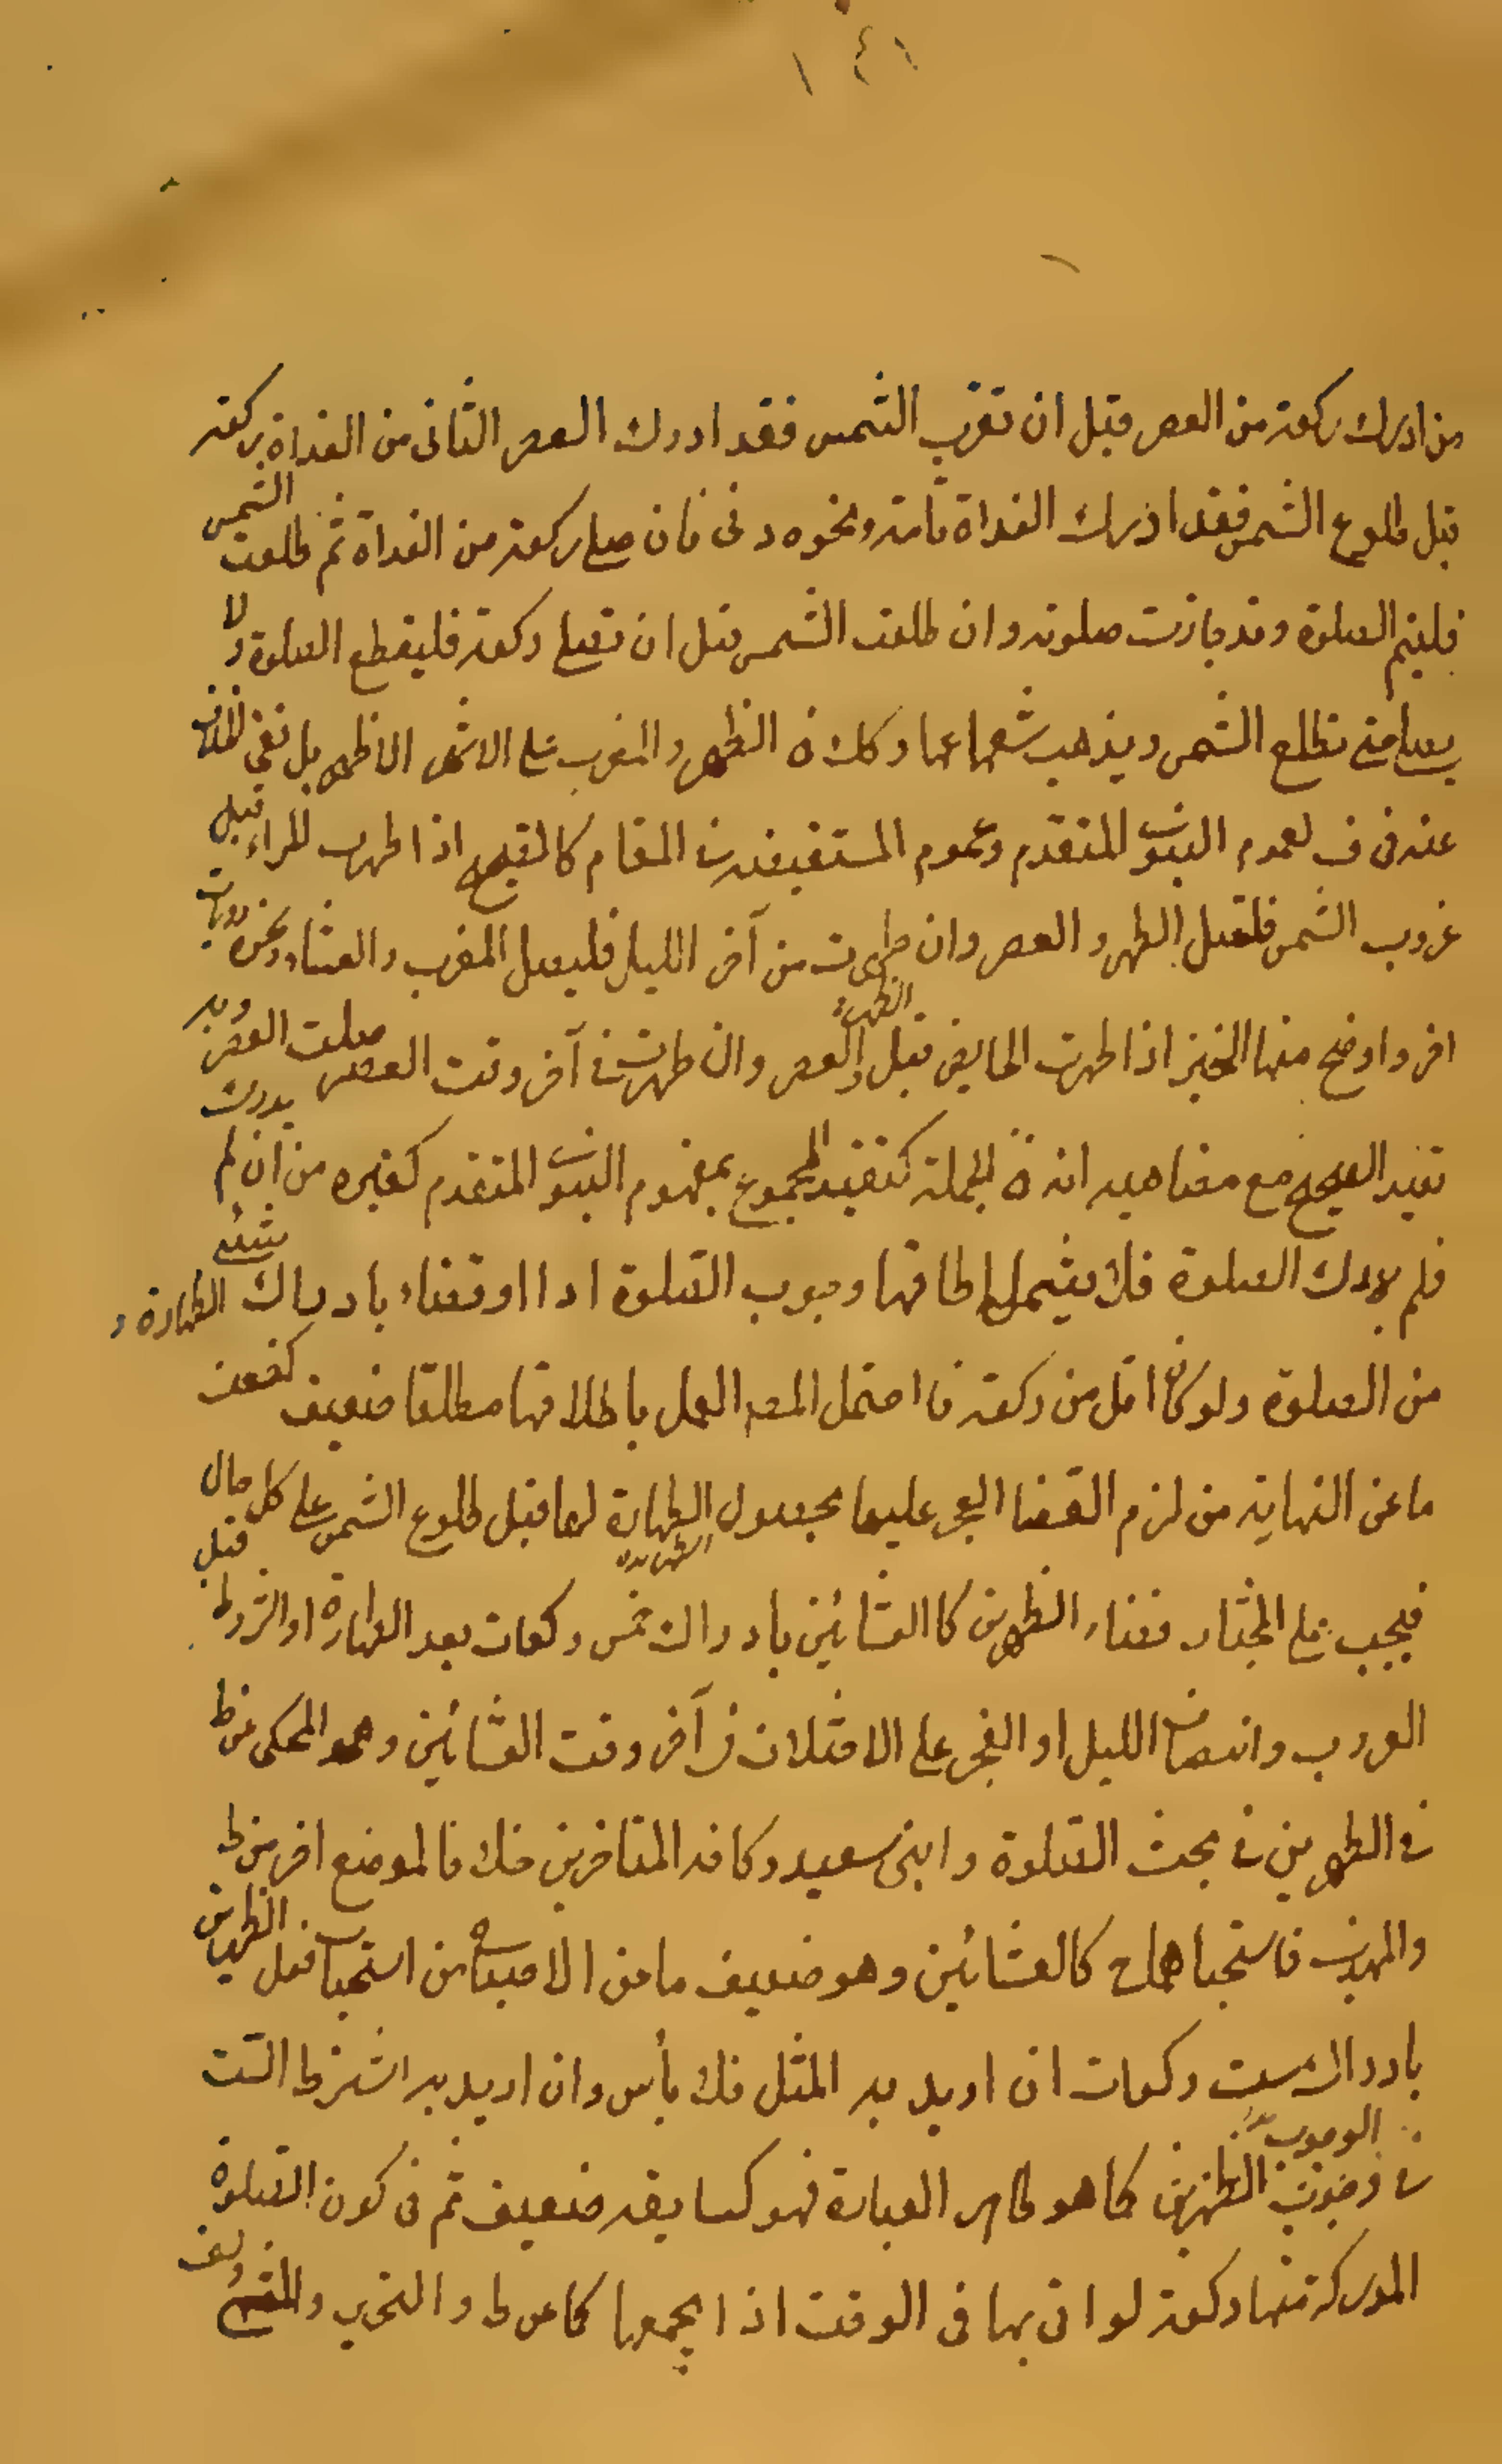 ١٤١
من ادرك ركعة من العصر قبل ان تغرب الشمس فقد ادرك العصر الثانى من الغداة بركعة
قبل طلوع الشمس فقد ادرك الغداة تامة ونحوه فان صلى ركعة من الغداة ثم طلعت الشمس
فليتم الصلوة وقد جازت صلوته وان طلعت الشمس قبل ان تصلى ركعة فليقطع الصلوة ولا
يصلى حتى تطلع الشمس ويذهب شعاعها وكك الظهر والمغرب على الاشهر الاظهر بل نفى الخلاف
عنه فى ف لعموم النبوى المتقدم وعموم المستفيضة المقام كالصحيح اذا طهرت المراة قبل
غروب الشمس فلتصل الظهر والعصر وان طهرت من آخر الليل فليصل المغرب والعشاء ونحوه روايات
اخر واوضح منها الخبر اذا طهرت الحايض قبل العصر والظهر وان طهرت فى آخر وقت العصر صلت العصر وبه
تقيد الصحيح مع مضاهيه فى الجملة كتقييد المجموع بمفهوم النبوى المتقدم كغيره من ان لم يدرك
فلم يدرك الصلوة فلا يشمل اطلاقها وجوب الصلوة ادا او قضاء بادراك الطهارة و شئ
من الصلوة ولو كان اقل من ركعة فاحتمل المص العمل باطلاقها مطلقا ضعيف كضعف
ما عن النهاية من لزم القضا الفجر عليها بحصول الطهارة لها قبل طلوع الشمس على كل حال
فيجب على المختار قضاء الظهرين كالعشائين بادراك خمس ركعات بعد الطهارة او الشروط قبل
الغروب وانتصاف الليل او الفجر على الاختلاف فى آخر وقت العشائين وهو المحكى عن ط
فى الطهرين فى بحث الصلوة وابنى سعيد وكافة المتاخرين خلافا لموضع اخر من ط
والمهذب فاستحباهما ح كالعشائين وهو ضعيف ما من الاصباح من استحباب فعل الظهرين
بادراك ست ركعات ان اريد به المثل فلا بأس وان اريد به اشتراط الست
فى الوجوب الظهرين كما هو ظاهر العبارة فهو كسابقه ضعيف ثم فى كون الصلوة
المدركة منها ركعة لو اتى بها فى الوقت اداء بجمعها كما عن ط و التحرير و